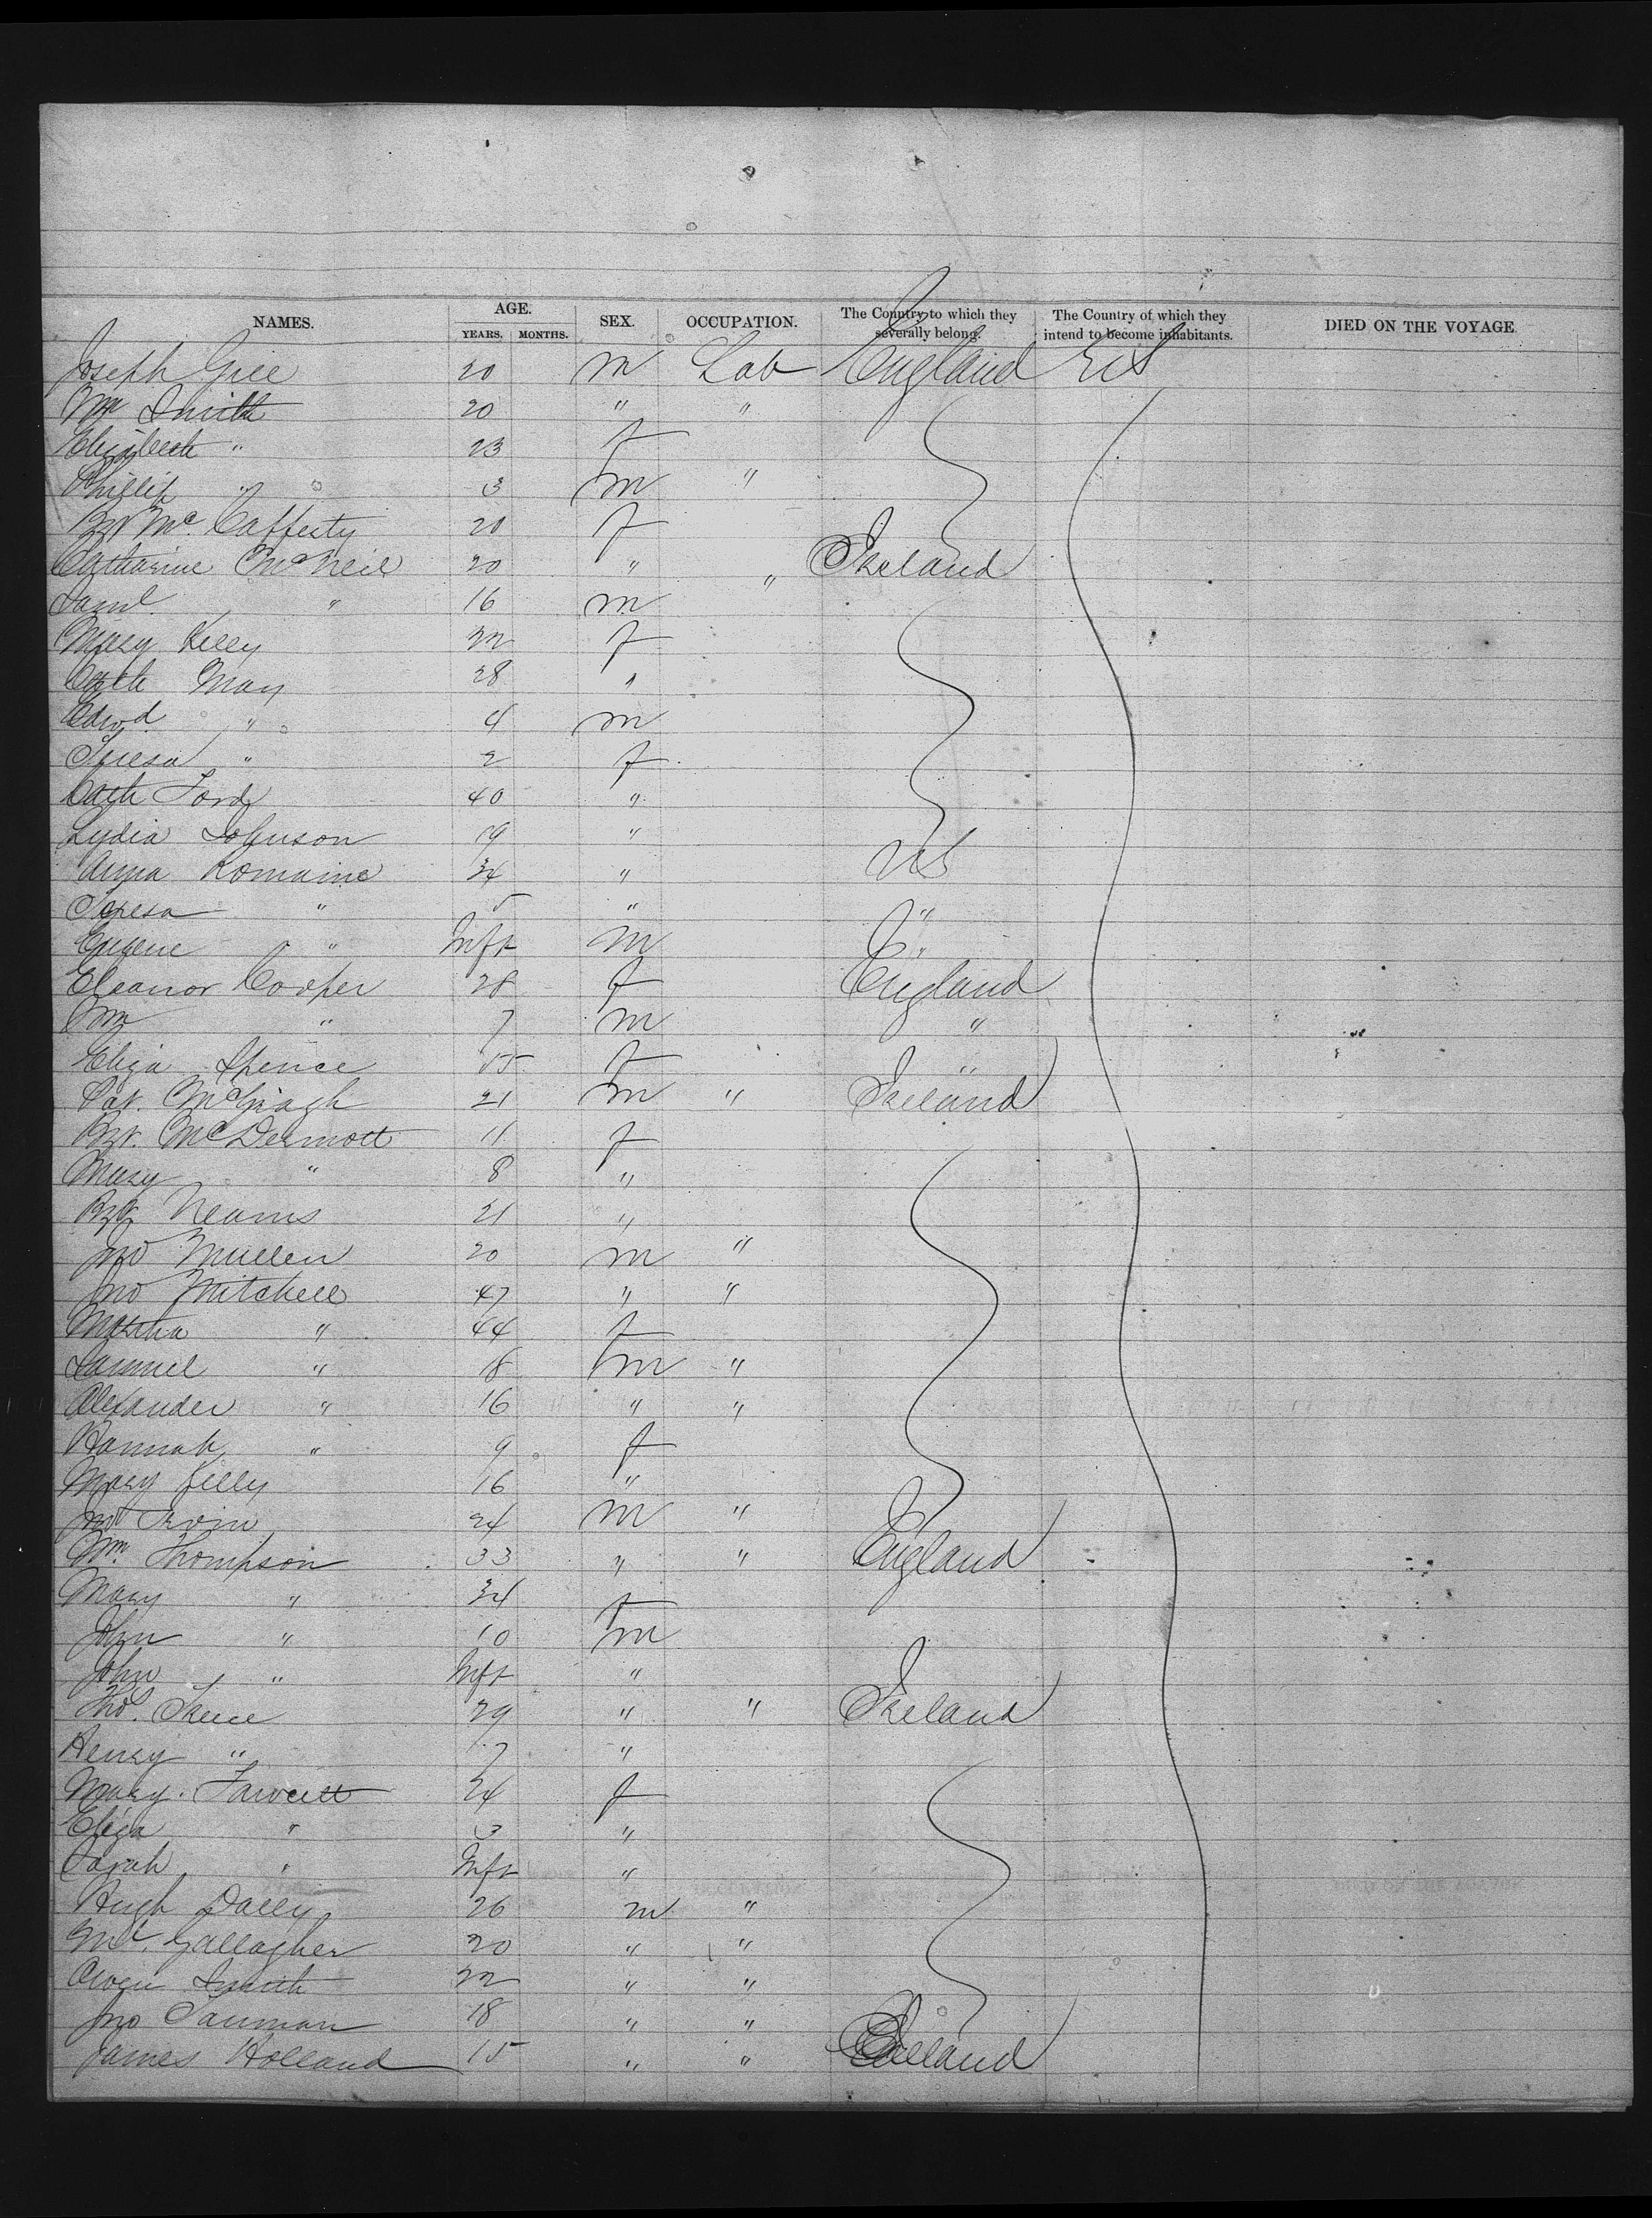 NAMES. AGE. SEX. OCCUPATION. The Country to which they severally belong. The Country of which they intend to become inhabitants. DIED ON THE VOYAGE.
YEARS. MONTHS.
Joseph Gill 20 m Lab England US
Wm Smith 20 " "
Elizabeth " 23 f
Phillip " 3 m "
Bgt McCafferty 20 f
Catharine McNeil 20 " " Ireland
Saml " 16 m
Mary Kelly 22 f
Cath May 28 "
Edwd " 4 m
Teresa " 2 f
Cath Ford 40 "
Lydia Johnson 19 " US
Anna Romaine 34 "
Teresa " 5 " "
Eugene " Inft m "
Eleanor Cooper 28 f England
Wm " 7 m "
Eliza Spence 15 f "
Pat. McGragh 21 m " Ireland
Bgt. McDermott 11 f
Mary " 8 "
Bgt Neams 21 "
Jno Mullen 20 m "
Jno Mitchell 47 " "
Martha " 44 f
Samuel " 18 m "
Alexander " 16 " "
Hannah " 9 f
Mary Lilly 16 "
Jno Irvin 24 m "
Wm Thompson 33 " " England
Mary " 34 f
John " 10 m
John " Inft "
Thos. 29 " " Ireland
Henry " 7 "
Mary. Fawcett 24 f
Eliza " 3 "
Sarah " Inft "
Hugh Dally 26 m "
Ml. Gallagher 20 " "
Owen Smith 22 " "
Jno 18 " "
James Holland 15 " " Ireland